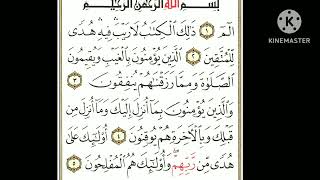 بِسْمِ اللَّهِ الرَّحْمَٰنِ الرَّحِيمِ
الٓمٓ ١ ذَٰلِكَ الْكِتَٰبُ لَا رَيْبَ فِيهِ هُدًى
لِّلْمُتَّقِينَ ٢ الَّذِينَ يُؤْمِنُونَ بِالْغَيْبِ وَيُقِيمُونَ
الصَّلَوٰةَ وَمِمَّا رَزَقْنَٰهُمْ يُنفِقُونَ ٣
وَالَّذِينَ يُؤْمِنُونَ بِمَا أُنزِلَ إِلَيْكَ وَمَا أُنزِلَ مِن
قَبْلِكَ وَبِالْآخِرَةِ هُمْ يُوقِنُونَ ٤ أُولَٰئِكَ عَلَىٰ
هُدًى مِّن رَّبِّهِمْ ۖ وَأُولَٰئِكَ هُمُ الْمُفْلِحُونَ ٥
KINEMASTER